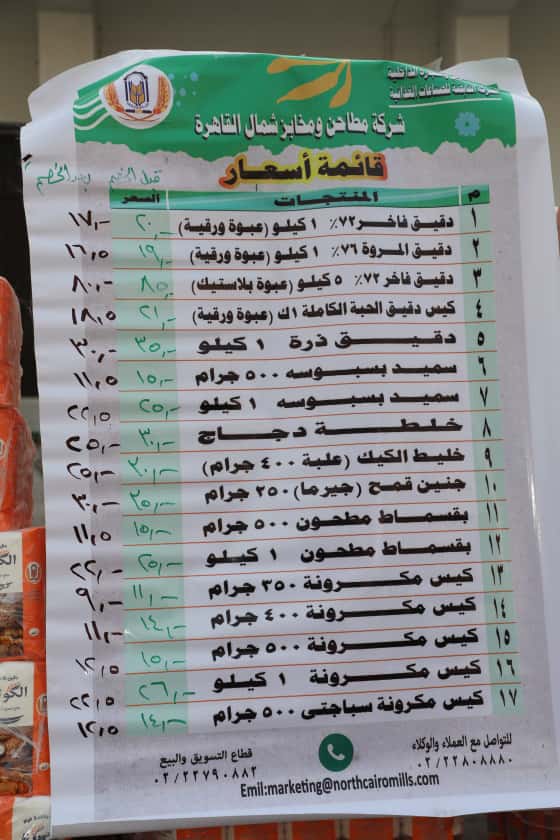 الداخلية
الشركة القابضة للصناعات الغذائية
شركة مطاحن ومخابز شمال القاهرة
قائمة أسعار
قبل الخصم بعد الخصم
م المنتجات السعر
١ دقيق فاخر ٧٢٪ ١ كيلو (عبوة ورقية) ٢٠,- ١٧,-
٢ دقيق المروة ٧٦٪ ١ كيلو (عبوة ورقية) ١٩,- ١٦,٥
٣ دقيق فاخر ٧٢٪ ٥ كيلو (عبوة بلاستيك) ٨٥,- ٨٠,-
٤ كيس دقيق الحبة الكاملة ١ك (عبوة ورقية) ٢١,- ١٨,٥
٥ دقيق ذرة ١ كيلو ٣٥,- ٣٠,-
٦ سميد بسبوسه ٥٠٠ جرام ١٥,- ١١,٥
٧ سميد بسبوسه ١ كيلو ٢٥,- ٢٢,٥
٨ خلطة دجاج ٣٠,- ٢٥,-
٩ خليط الكيك (علبة ٤٠٠ جرام) ٣٠,-
١٠ جنين قمح (جيرما) ٢٥٠ جرام ٣٥,- ٣٠,-
١١ بقسماط مطحون ٥٠٠ جرام ١٥,- ١١,٥
١٢ بقسماط مطحون ١ كيلو ٢٥,- ٢٢,-
١٣ كيس مكرونة ٣٥٠ جرام ١١,- ٩,-
١٤ كيس مكرونة ٤٠٠ جرام ١٤,- ١١,-
١٥ كيس مكرونة ٥٠٠ جرام ١٥,- ١٢,٥
١٦ كيس مكرونة ١ كيلو ٢٦,- ٢٢,٥
١٧ كيس مكرونة سباجتى ٥٠٠ جرام ١٤,- ١٢,٥
للتواصل مع العملاء والوكلاء
٠٢/٢٢٨٠٨٨٨٠
قطاع التسويق والبيع
٠٢/٢٢٧٩٠٨٨٢
Emil:marketing@northcairomills.com